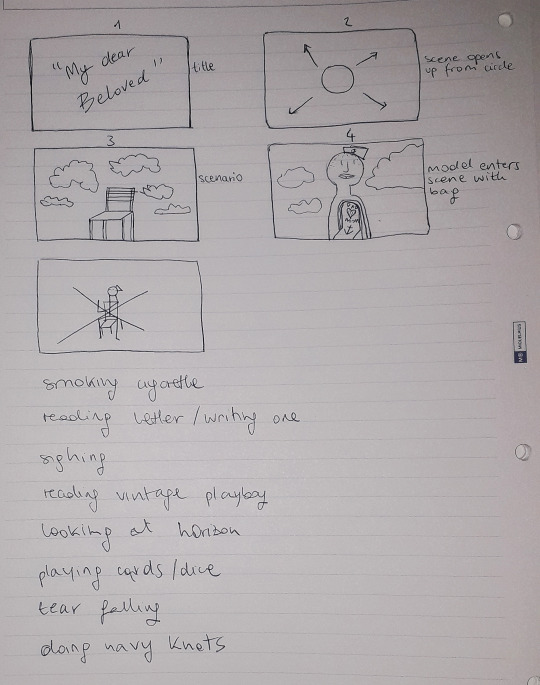 1
"My dear
Beloved"
title
2
scene opens
up from circle
3
scenario
4
model enters
scene with
bag
smoking cigarette
reading letter / writing one
sighing
reading vintage playboy
looking at horison
playing cards / dice
tear falling
doing navy knots